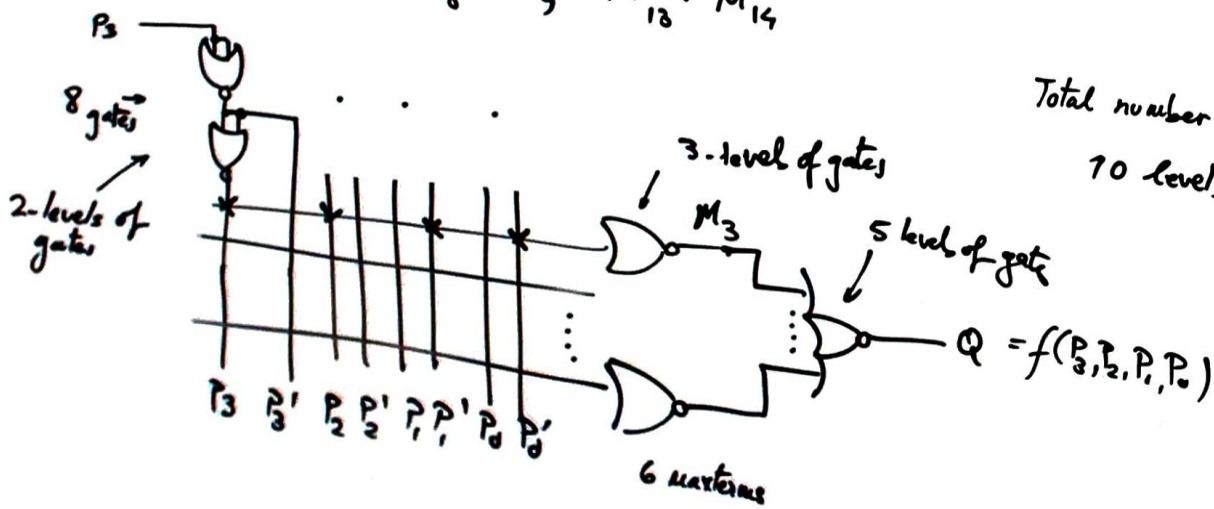 13 . M14
P3
8 gates
2-levels of
gates
Total number
10 level,
3-level of gates
M3
5 level of gate
Q = f(P3, P2, P1, P0)
P3 P3' P2 P2' P1 P1' P0 P0'
6 maxterms